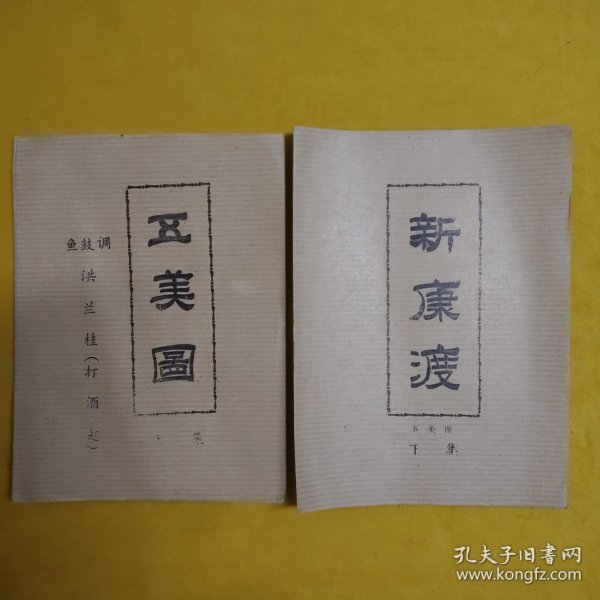 五美圖
鱼鼓调
洪兰桂(打酒起)
上集
新康渡
五美图
下集
孔夫子旧书网
www.kongfz.com